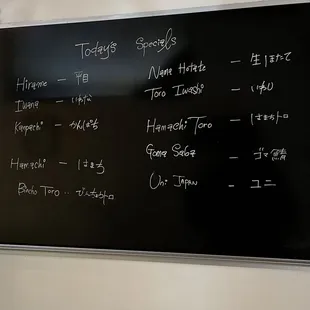 Today's Specials
Hirame — 平目
Iwana — いわな
Kanpachi — かんぱち
Hamachi — はまち
Bincho Toro .. びんちょうトロ
Nama Hotate — 生ほたて
Toro Iwashi — いわし
Hamachi Toro — はまちトロ
Goma Saba — ゴマ鯖
Uni JAPAN — ユニ